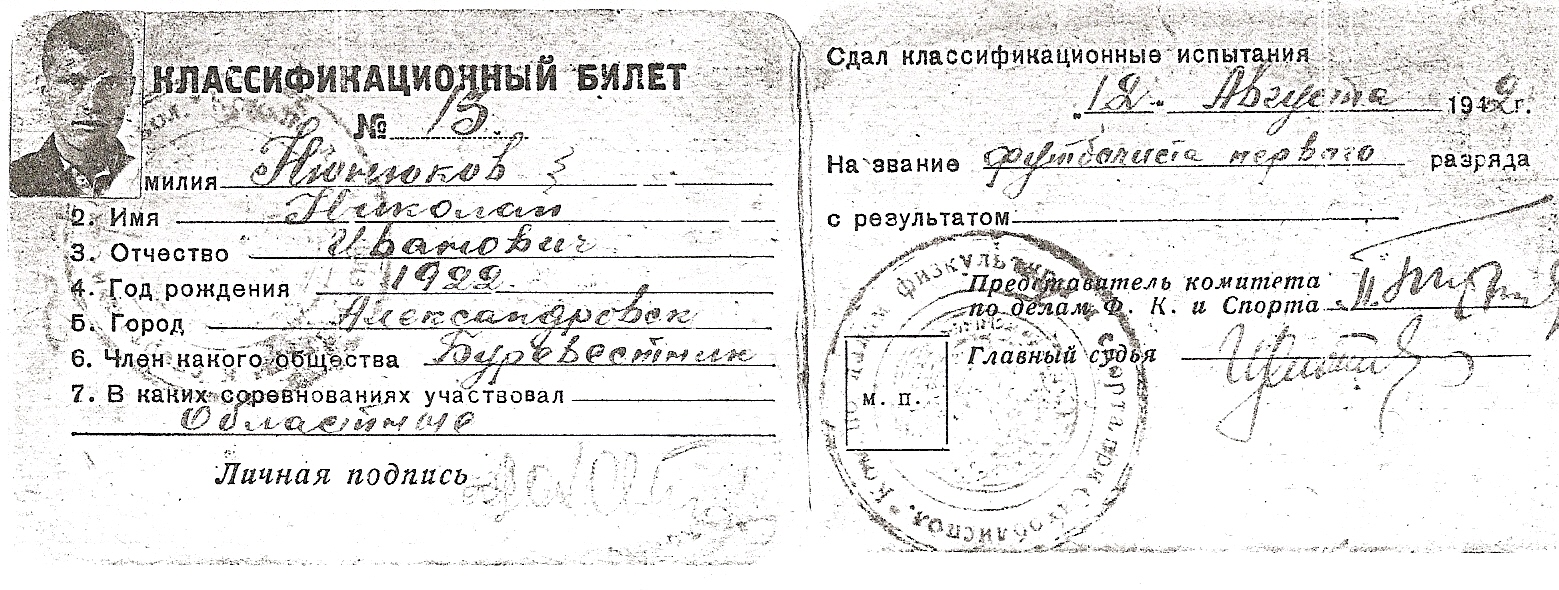 КЛАССИФИКАЦИОННЫЙ БИЛЕТ
№ 13.
милия Нюнюков
2. Имя Николай
3. Отчество Иванович
4. Год рождения 1922
5. Город Александровск
6. Член какого общества Буревестник
7. В каких соревнованиях участвовал
Областные
Личная подпись
Сдал классификационные испытания
12. Августа 1942 г.
На звание футболиста первого разряда
с результатом
Представитель комитета
по делам Ф. К. и Спорта
Главный судья
м. п.
физкультуры спорта при облиспол.